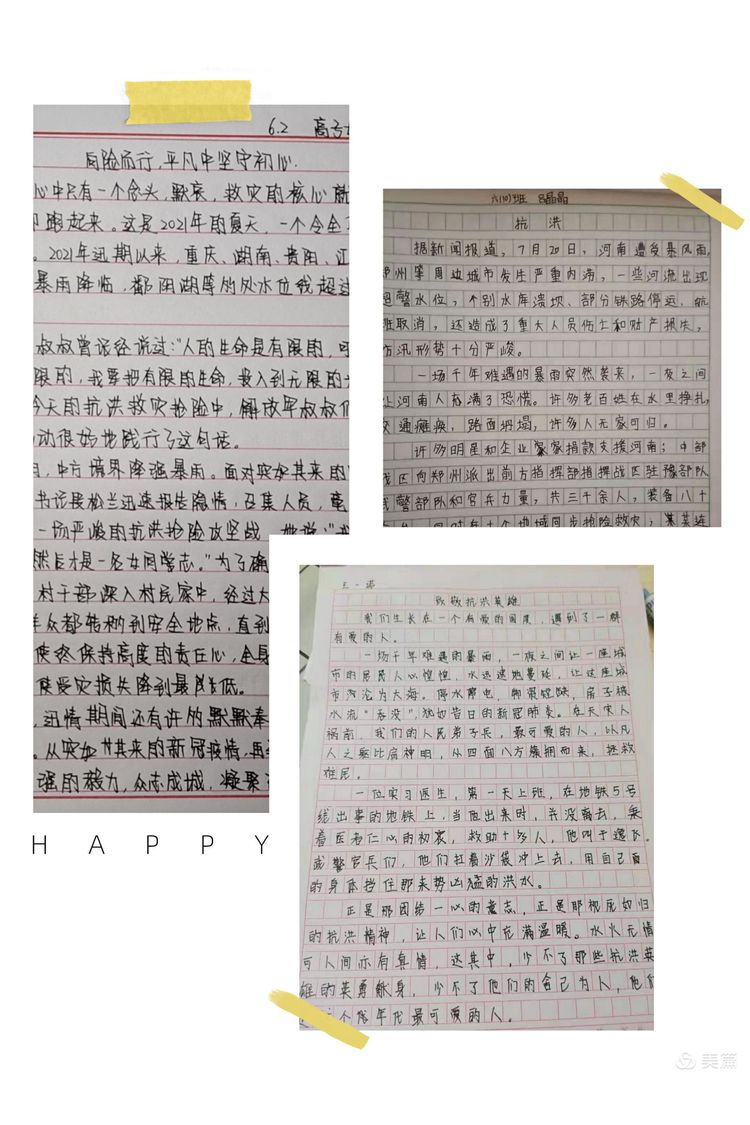 6.2 高子
向险而行,平凡中坚守初心.
心中只有一个念头,默哀,救灾的核心就
跑起来。这是2021年的夏天,一个令全
。2021年迅期以来,重庆、湖南、贵阳、江
暴雨降临,鄱阳湖等的处水位线超过
叔叔曾说经说过:"人的生命是有限的,可
限的,我要把有限的生命,投入到无限的
今天的抗洪救灾抢险中,解放军叔叔们
动很好地践行了这句话。
,中方境界降强暴雨。面对突如其来的
书记段松兰迅速报告隐情,召集人员,
一场严峻的抗洪抢险攻坚战。她说"我
然后才是一名女同学志。"为了确
村干部深入村民家中,经过大
众都转移到安全地点,直到
终保持高度的责任心,全身
使受灾损失降到最低。
迅情期间还有许多默默奉
。从突如其来的新冠疫情,再
强的毅力,众志成城,凝聚
HAPPY
六(10)班 吕晶晶
抗洪
据新闻报道,7月20日,河南遭受暴风雨,
郑州等周边城市发生严重内涝,一些河流出现
超警水位,个别水库溃坝、部分铁路停运,航
班取消,还造成了重大人员伤亡和财产损失,
防汛形势十分严峻。
一场千年难遇的暴雨突然袭来,一夜之间
让河南人充满了恐慌。许多老百姓在水里挣扎,
交通瘫痪,路面坍塌,许多人无家可归。
许多明星和企业家捐款支援河南;中部
战区向郑州派出前方指挥部指挥战区驻豫部队
武警部队和官兵力量,共三千余人,装备八十
个地域同步抢险救灾;某某连
王一诺
致敬抗洪英雄
我们生长在一个有爱的国度,遇到了一群
有爱的人。
一场千年难遇的暴雨,一夜之间让一座城
市的居民人心惶惶,水迅速地蔓延,让这座城
市沉沦为大海。停水停电,脚很短缺,房子被
水流"吞没",犹如昔日的新冠肺炎。在天灾人
祸前,我们的人民弟子兵,最可爱的人,以凡
人之躯比肩神明,从四面八方簇拥而来,拯救
难民。
一位实习医生,第一天上班,在地铁5号
线出事的地铁上,当他出来时,并没离去,秉
着医者仁心的初衷,救助十多人,他叫于逸飞。
武警官兵们,他们扛着沙袋冲上去,用自己
的身体挡住那来势凶猛的洪水。
正是那团结一心的意志,正是那视死如归
的抗洪精神,让人们心中充满温暖。水火无情
可人间亦有真情,这其中,少不了那些抗洪英
雄的英勇献身,少不了他们的舍己为人,他们
个倍年代最可爱的人。
美篇